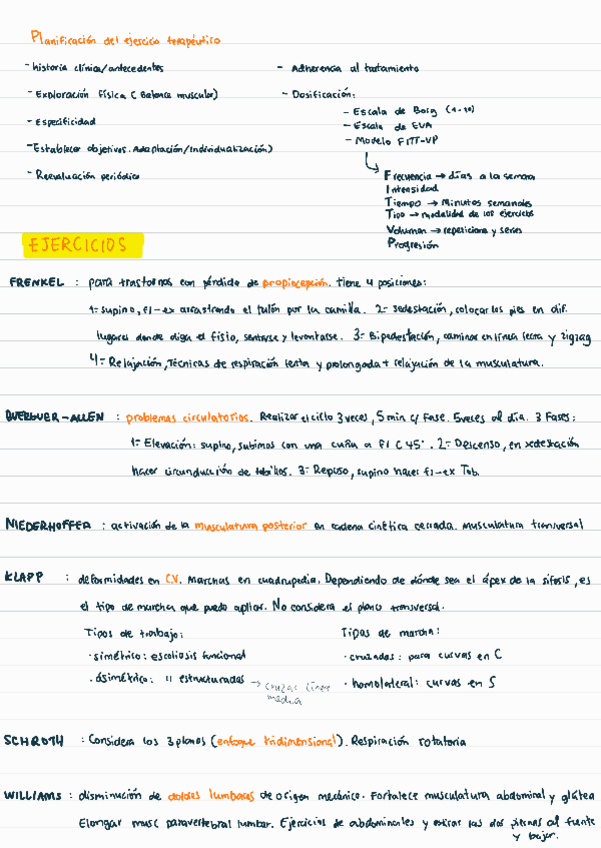 Planificación del ejercicio terapéutico
- historia clínica/antecedentes
- Exploración física ( Balance muscular)
- Especificidad
- Establecer objetivos. Adaptación/Individualización)
- Reevaluación periódica
- Adherencia al tratamiento
- Dosificación:
- Escala de Borg (1-10)
- Escala de EVA
- Modelo FITT-VP
Frecuencia → días a la semana
Intensidad
Tiempo → Minutos semanales
Tipo → modalidad de los ejercicios
Volumen → repeticiones y series
Progresión
EJERCICIOS
FRENKEL : para trastornos con pérdida de propiocepción. tiene 4 posiciones:
1- supino, fl-ex arrastrando el talón por la camilla. 2- sedestación, colocar los pies en dif.
lugares donde diga el fisio, sentarse y levantarse. 3- Bipedestación, caminar en línea recta y zigzag
4- Relajación, técnicas de respiración lenta y prolongada + relajación de la musculatura.
BUERGUER-ALLEN : problemas circulatorios. Realizar el ciclo 3 veces, 5 min c/ fase. 5 veces al día. 3 Fases:
1- Elevación: supino, subimos con una cuña a fl C 45°. 2- Descenso, en sedestación
hacer circunducción de tobillos. 3- Reposo, supino hacer fl-ex Tob.
NIEDERHOFFER : activación de la musculatura posterior en cadena cinética cerrada. Musculatura transversal
KLAPP : deformidades en C.V. Marchas en cuadrupedia. Dependiendo de dónde sea el ápex de la sifosis, es
el tipo de marcha que puedo aplicar. No considera el plano transversal.
Tipos de trabajo:
· simétrico: escoliosis funcional
· Asimétrico: " estructuradas → cruzar línea
media
Tipos de marcha:
· cruzadas: para curvas en C
· homolateral: curvas en S
SCHROTH : Considera los 3 planos (enfoque tridimensional). Respiración rotatoria
WILLIAMS : disminución de dolores lumbares de origen mecánico. Fortalece musculatura abdominal y glútea
Elongar musc paravertebral lumbar. Ejercicios de abdominales y estirar las dos piernas al frente
y bajar.